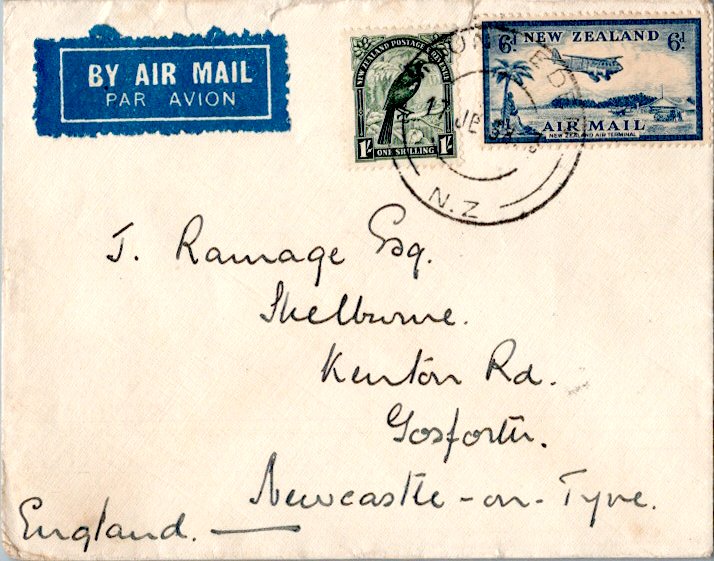 BY AIR MAIL
PAR AVION
NEW ZEALAND POSTAGE & REVENUE
1/- ONE SHILLING 1/-
6d NEW ZEALAND 6d
AIR MAIL
NEW ZEALAND AIR TERMINAL
17 JE
N.Z
J. Ramage Esq.
Shelburne.
Kenton Rd.
Gosforth.
Newcastle-on-Tyne.
England.